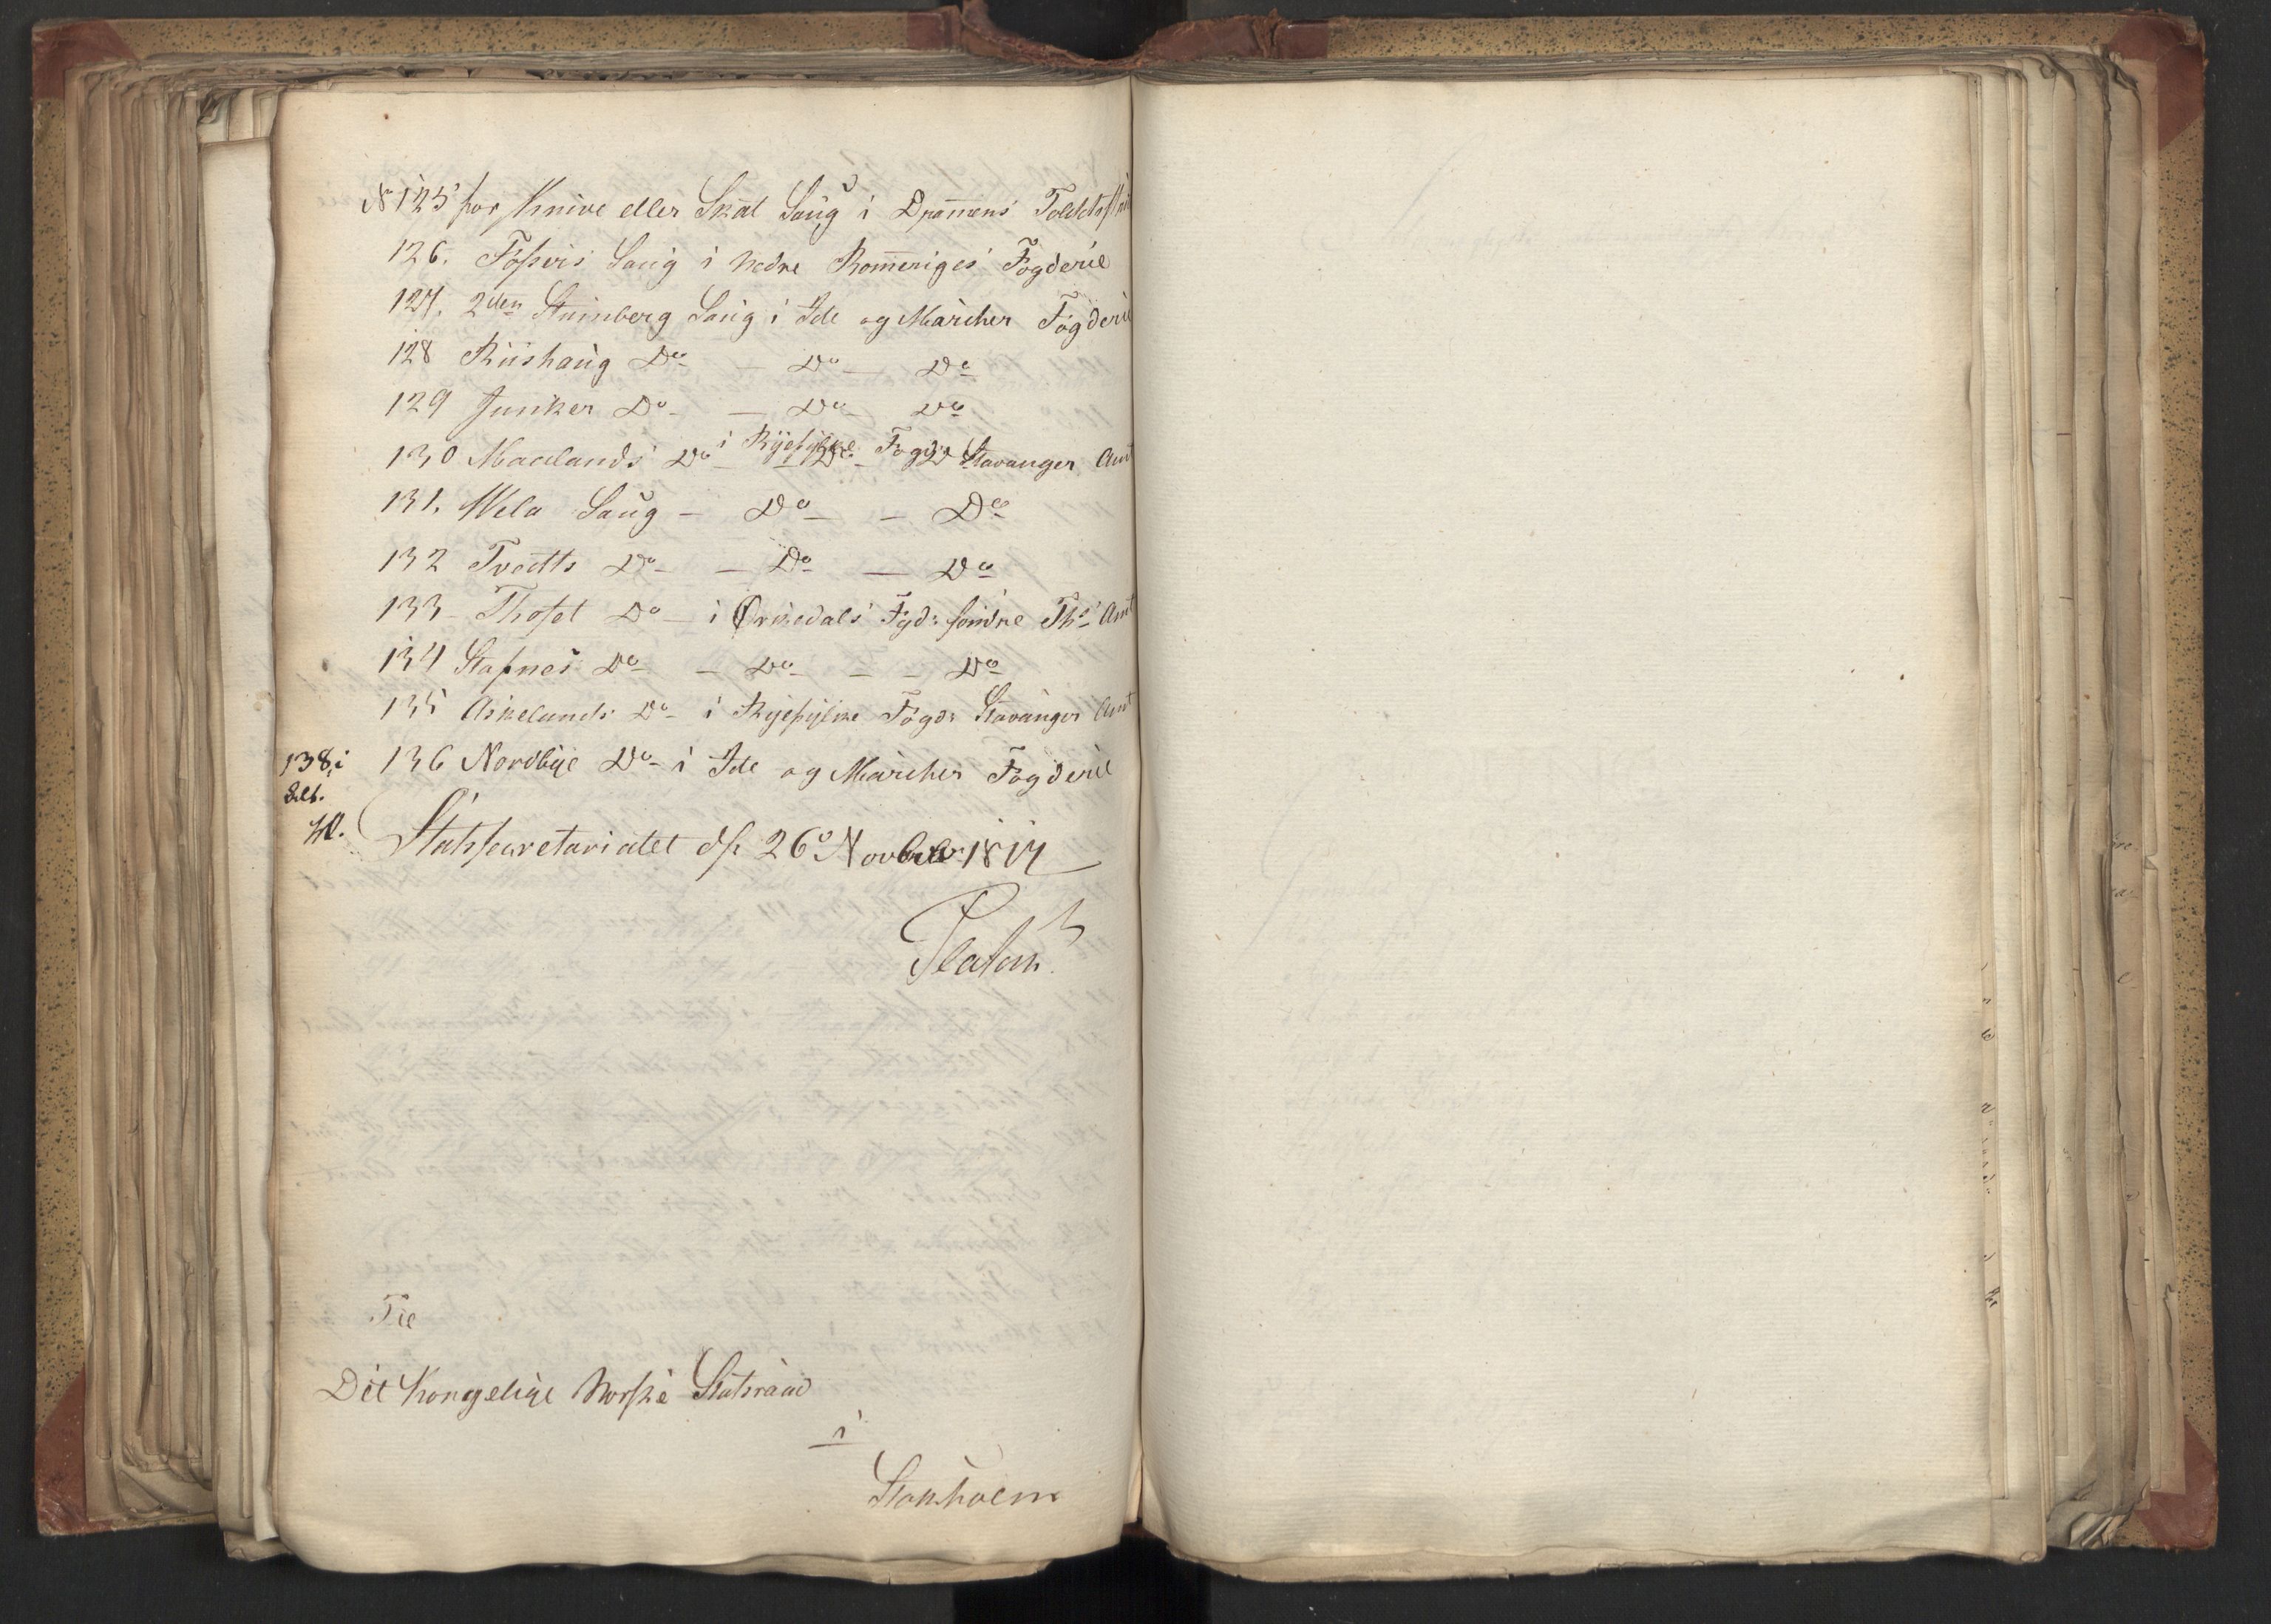 No 125 for Knive eller Skal Saug i Dramens Tolddistr
126. Fossvis Saug i nedre Romeriges Fogderie
127. 2den Steinberg Saug i Ide og Marcker Fogderie
128 Riishaug Do — Do — Do
129 Junker Do — Do Do
130 Maalands Do i Ryefylke Fogd: Stavanger Amt
131. Wela Saug — Do — Do
132 Tvedts Do — Do — Do
133 Thoset Do — i Ørkedals Fgd: søndre Ths Amt
134 Stafnes Do — Do — Do
135 Askelands Do i Ryefylke Fogd: Stavanger Amt
136 Nordbye Do i Ide og Marcker Fogderie
138, i
40.
Statssecretariatet d. 26 Novbr 1817
Platou
Til
Det Kongelige Norske Statsraad
i
Stokholm